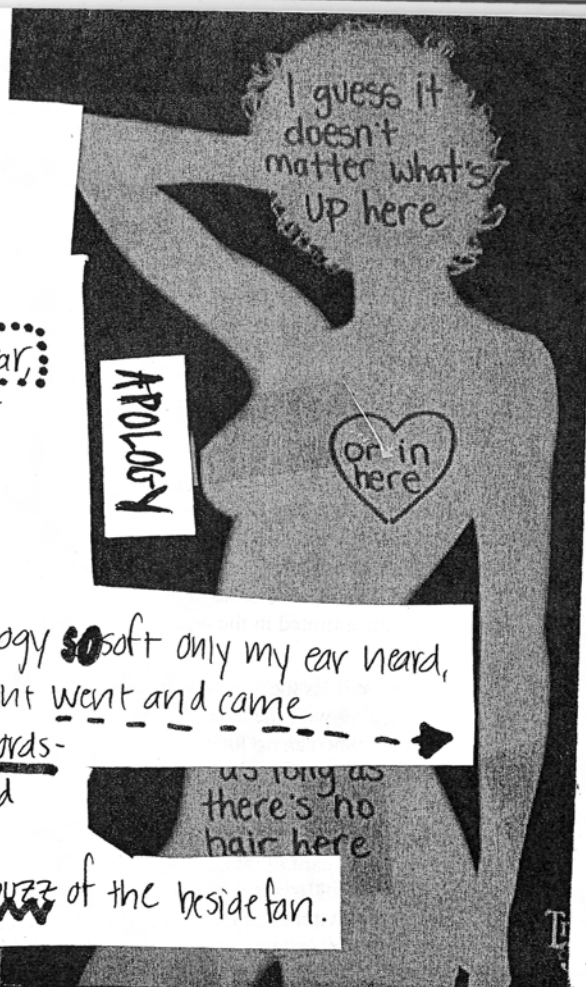 I guess it
doesn't
matter what's
up here
ar,
APOLOGY
or in
here
ogy so soft only my ear heard,
nt went and came
ords-
d
as long as
there's no
hair here
buzz of the beside fan.